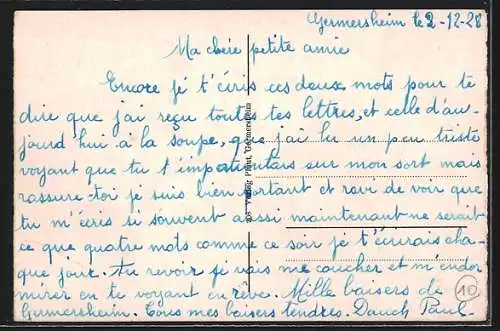 Germersheim le 2-12-28
Ma chère petite amie
Encore je t'écris ces deux mots pour te
dire que j'ai reçu toutes tes lettres, et celle d'au-
jourd hui à la soupe, que j'ai lu un peu triste
voyant que tu t'impatientais sur mon sort mais
rassure-toi je suis bien portant et ravi de voir que
tu m'écris si souvent aussi maintenant ne serait
ce que quatre mots comme ce soir je t'écrirais cha-
que jour. Au revoir je vais me coucher et m'endor
mirer en te voyant en rêve. Mille baisers de
Germersheim. Tous mes baisers tendres. Paul
Verlag Germersheim
10